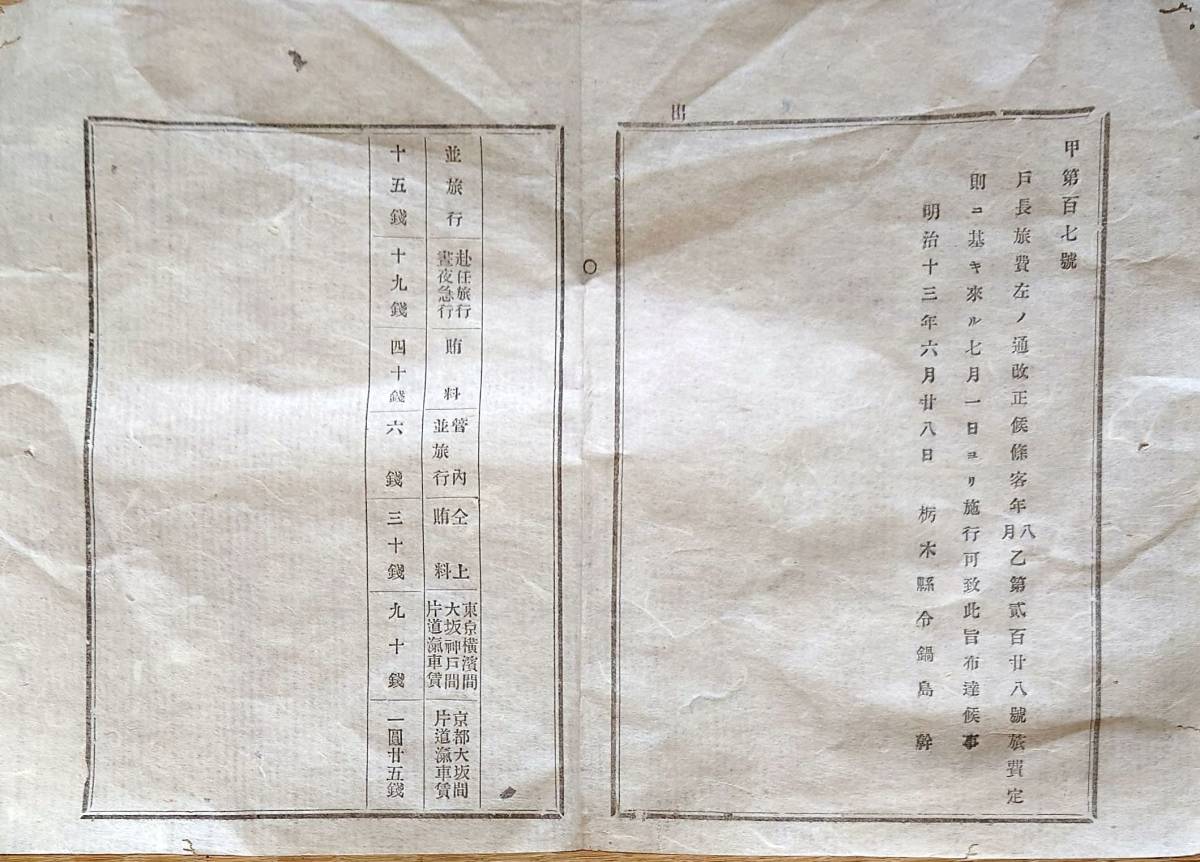 出
甲第百七號
戸長旅費左ノ通改正候條客年八月乙第貳百廿八號旅費定
則ニ基キ來ル七月一日ヨリ施行可致此旨布達候事
明治十三年六月廿八日 栃木縣令鍋島幹
並旅行
赴任旅行
晝夜急行
賄料
管內
並旅行
仝上
賄料
東京橫濱間
大坂神戸間
片道滊車賃
京都大坂間
片道滊車賃
十五錢
十九錢
四十錢
六錢
三十錢
九十錢
一圓廿五錢